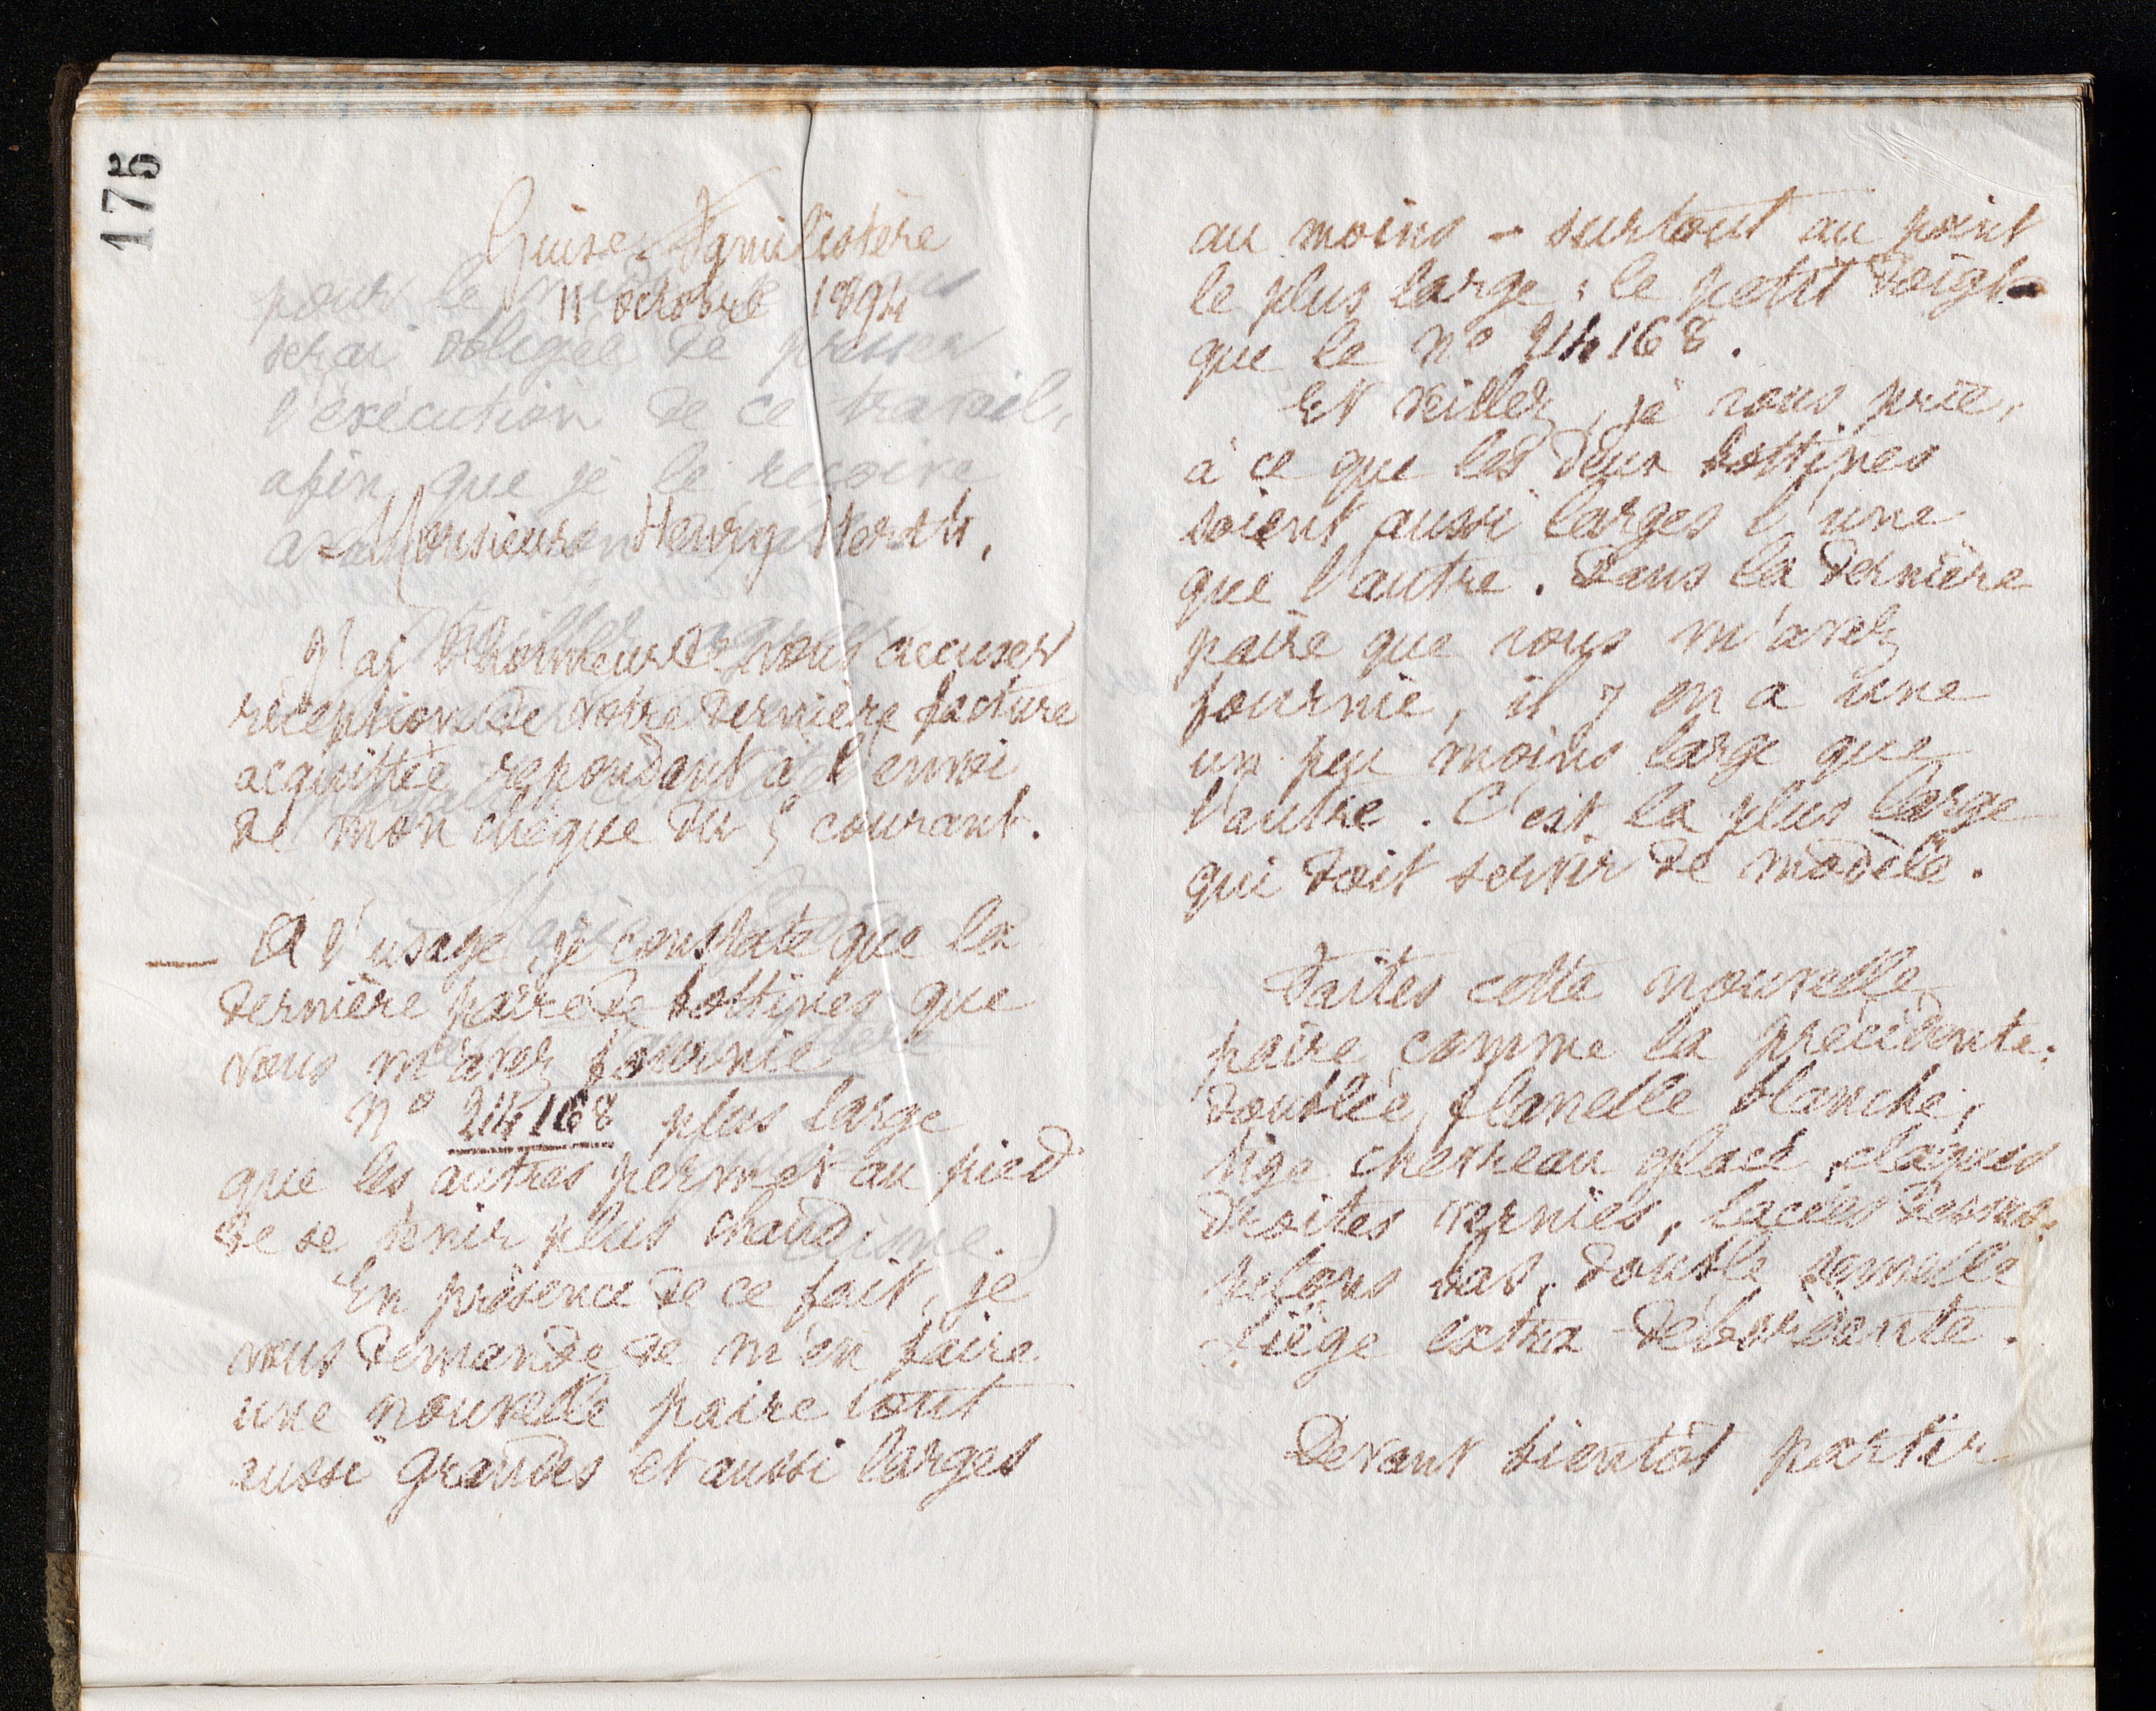 175
Guise Familistère
11 octobre 1894
Monsieur Henry
J'ai l'honneur de vous accuser
réception de votre dernière facture
acquittée répondant à l'envoi
de mon chèque du 5 courant.
A l'usage, je constate que la
dernière paire de bottines que
vous m'avez fournie
n° 24168 plus large
que les autres permet au pied
de se tenir plus chaud.
En présence de ce fait, je
vous demande de m'en faire
une nouvelle paire tout
aussi grandes et aussi larges
au moins - surtout au point
le plus large : le petit doigt -
que le n° 24168.
Et veillez, je vous prie,
à ce que les deux bottines
soient aussi larges l'une
que l'autre. Dans la dernière
paire que vous m'avez
fournie, il y en a une
un peu moins large que
l'autre. C'est la plus large
qui doit servir de modèle.
Faites cette nouvelle
paire comme la précédente :
doublée flanelle blanche,
tige chevreau glacé, claques
droites vernies, lacées dessus,
talons bas, double semelle
liège extra débordante.
Devant bientôt partir
pour le midi, je vous
serai obligée de presser
l'exécution de ce travail,
afin que je le reçoive